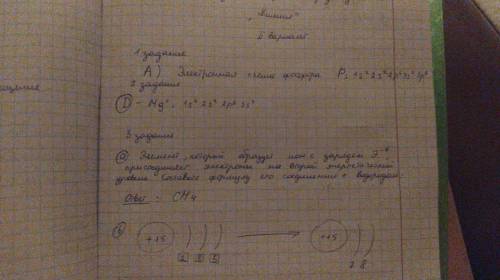 "Химия"
II вариант
1 задание
А) Электронная схема фосфора P. 1s² 2s² 2p⁶ 3s² 3p³
2 задание
D - Mg. 1s² 2s² 2p⁶ 3s²
3 задание
а Элемент, который образует ион с зарядом Э⁻⁴
присоединяет электроны на второй энергетический
уровень. Составьте формулу его соединения с водородом.
Ответ - CH₄
+15 → +15
2 8 5 2 8